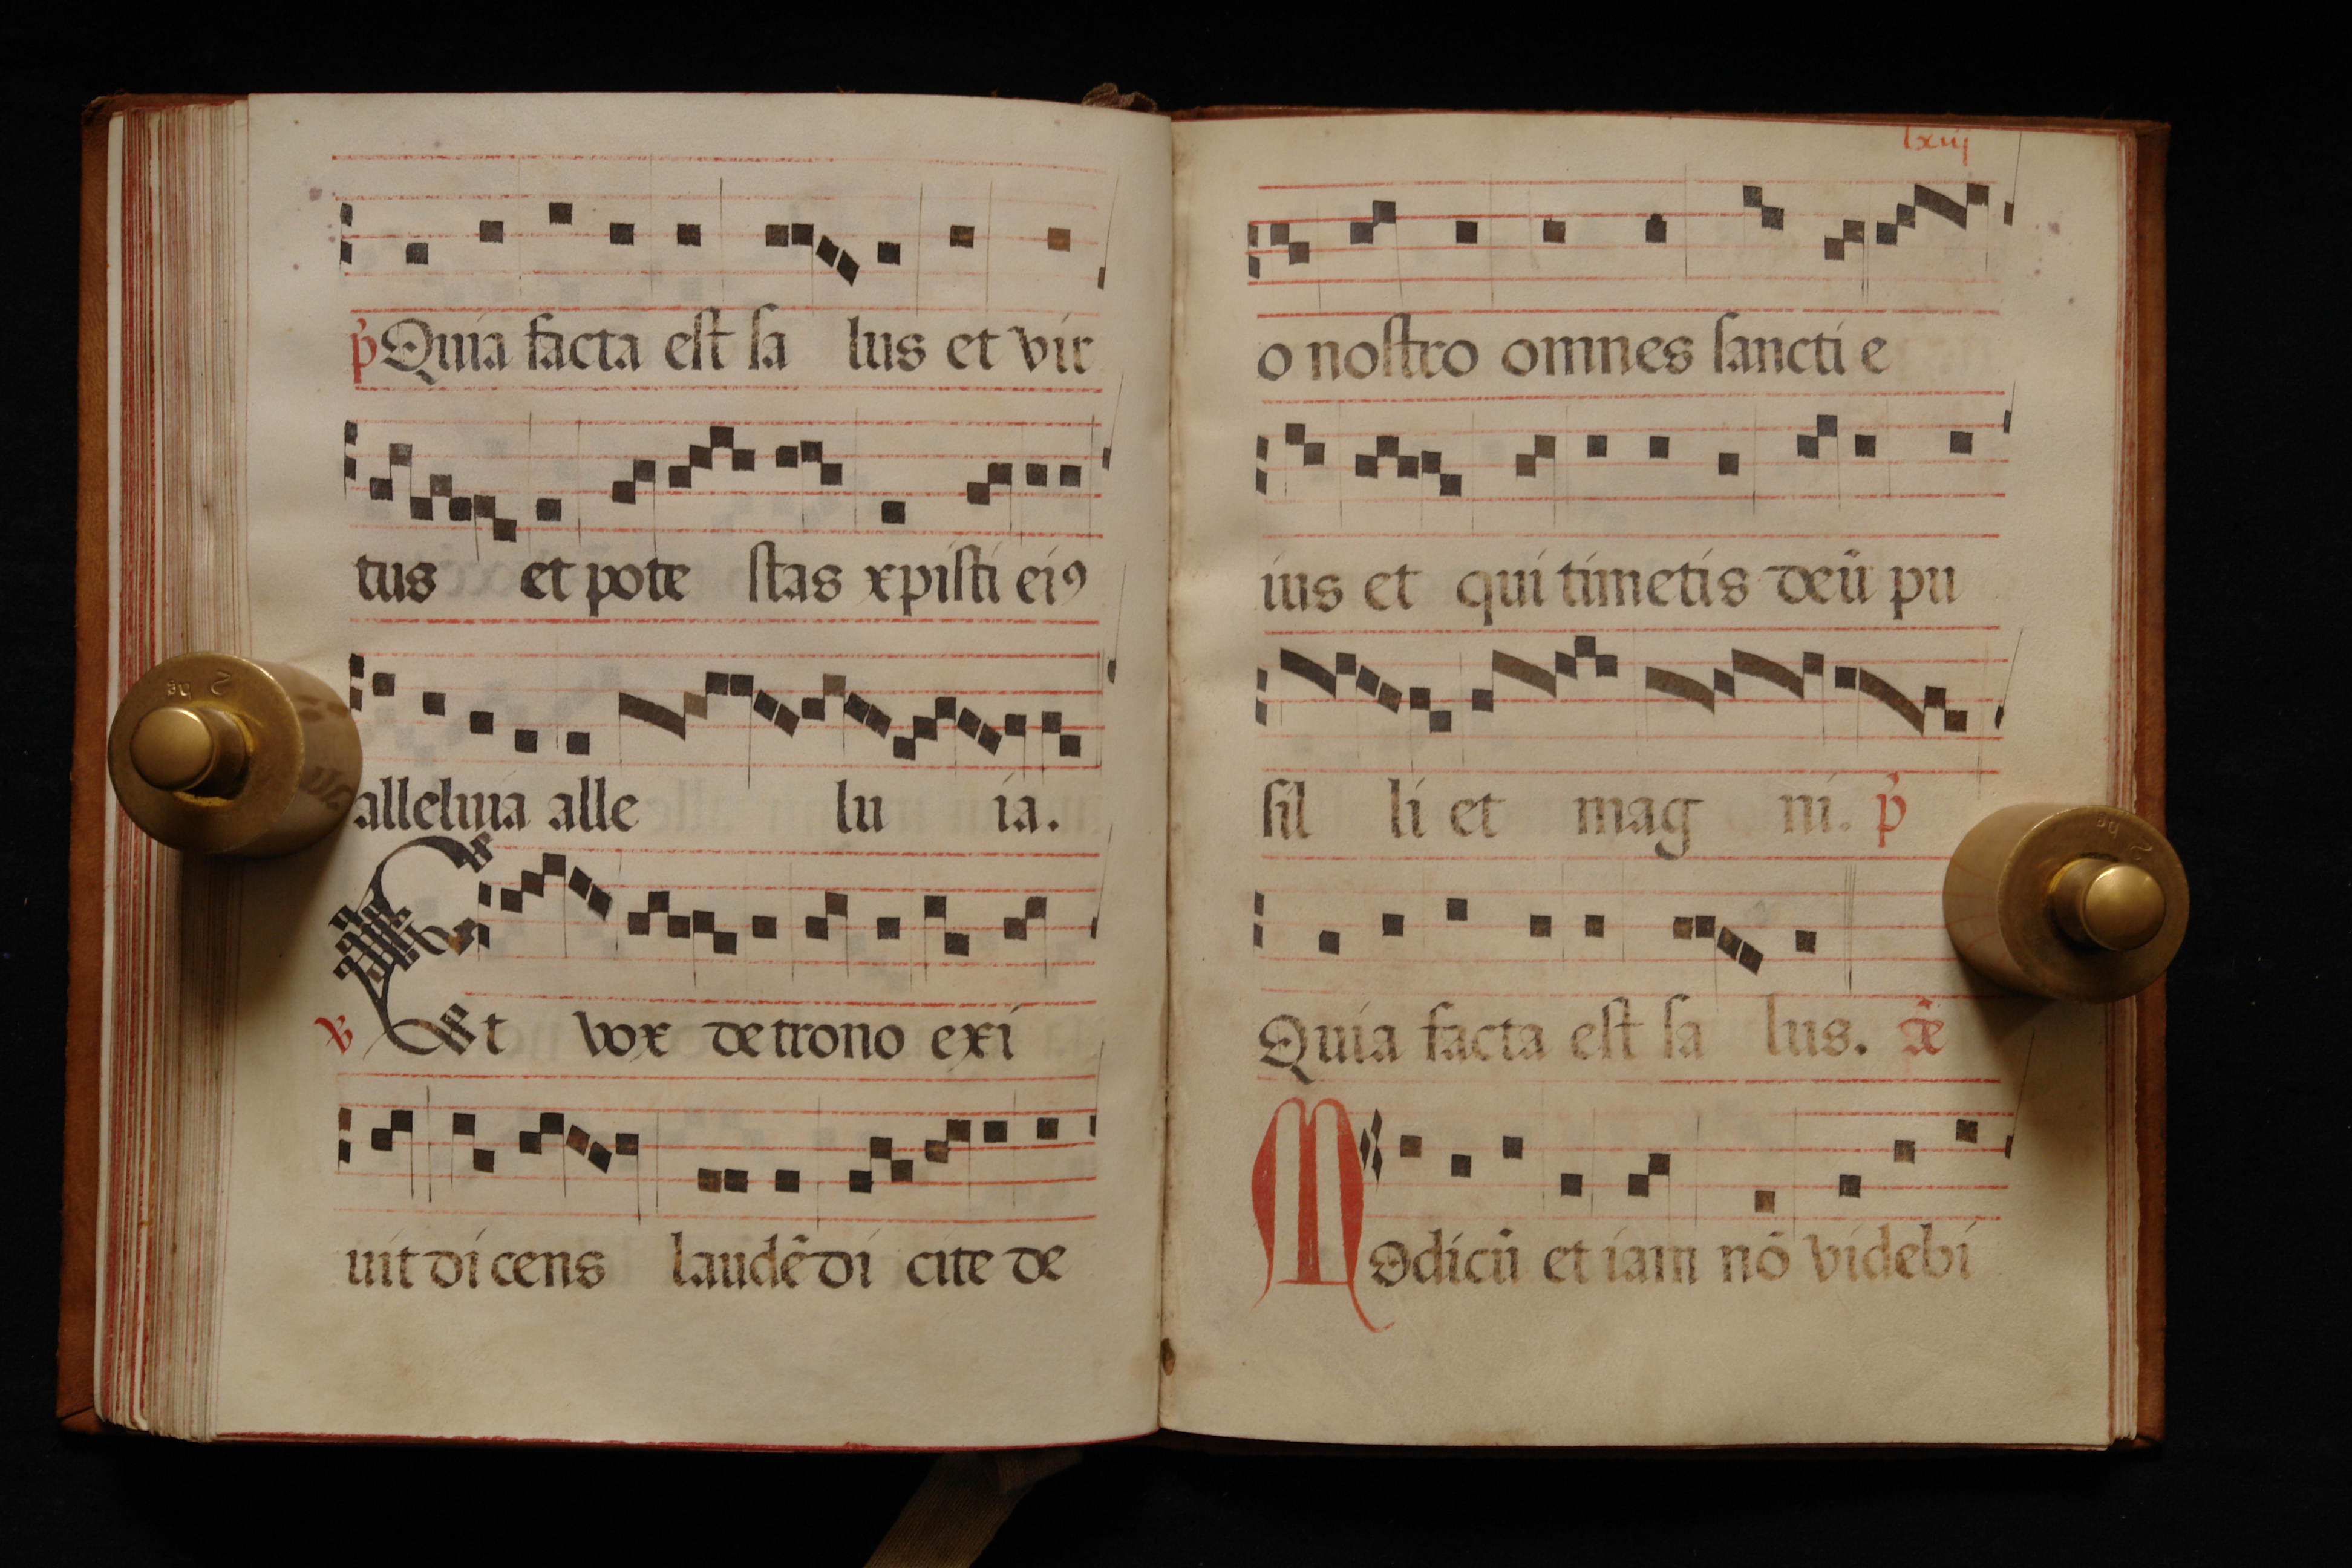 p̄ Quia facta est sa lus et vir
tus et pote stas xpisti ei9
alleluia alle lu ia.
V Et vox de trono exi
uit dicens laudē di cite de
lxiij
o nostro omnes sancti e
ius et qui timetis deū pu
sil li et mag ni. p̄
Quia facta est sa lus.
Modicū et iam nō videbi
2 kg
2 kg